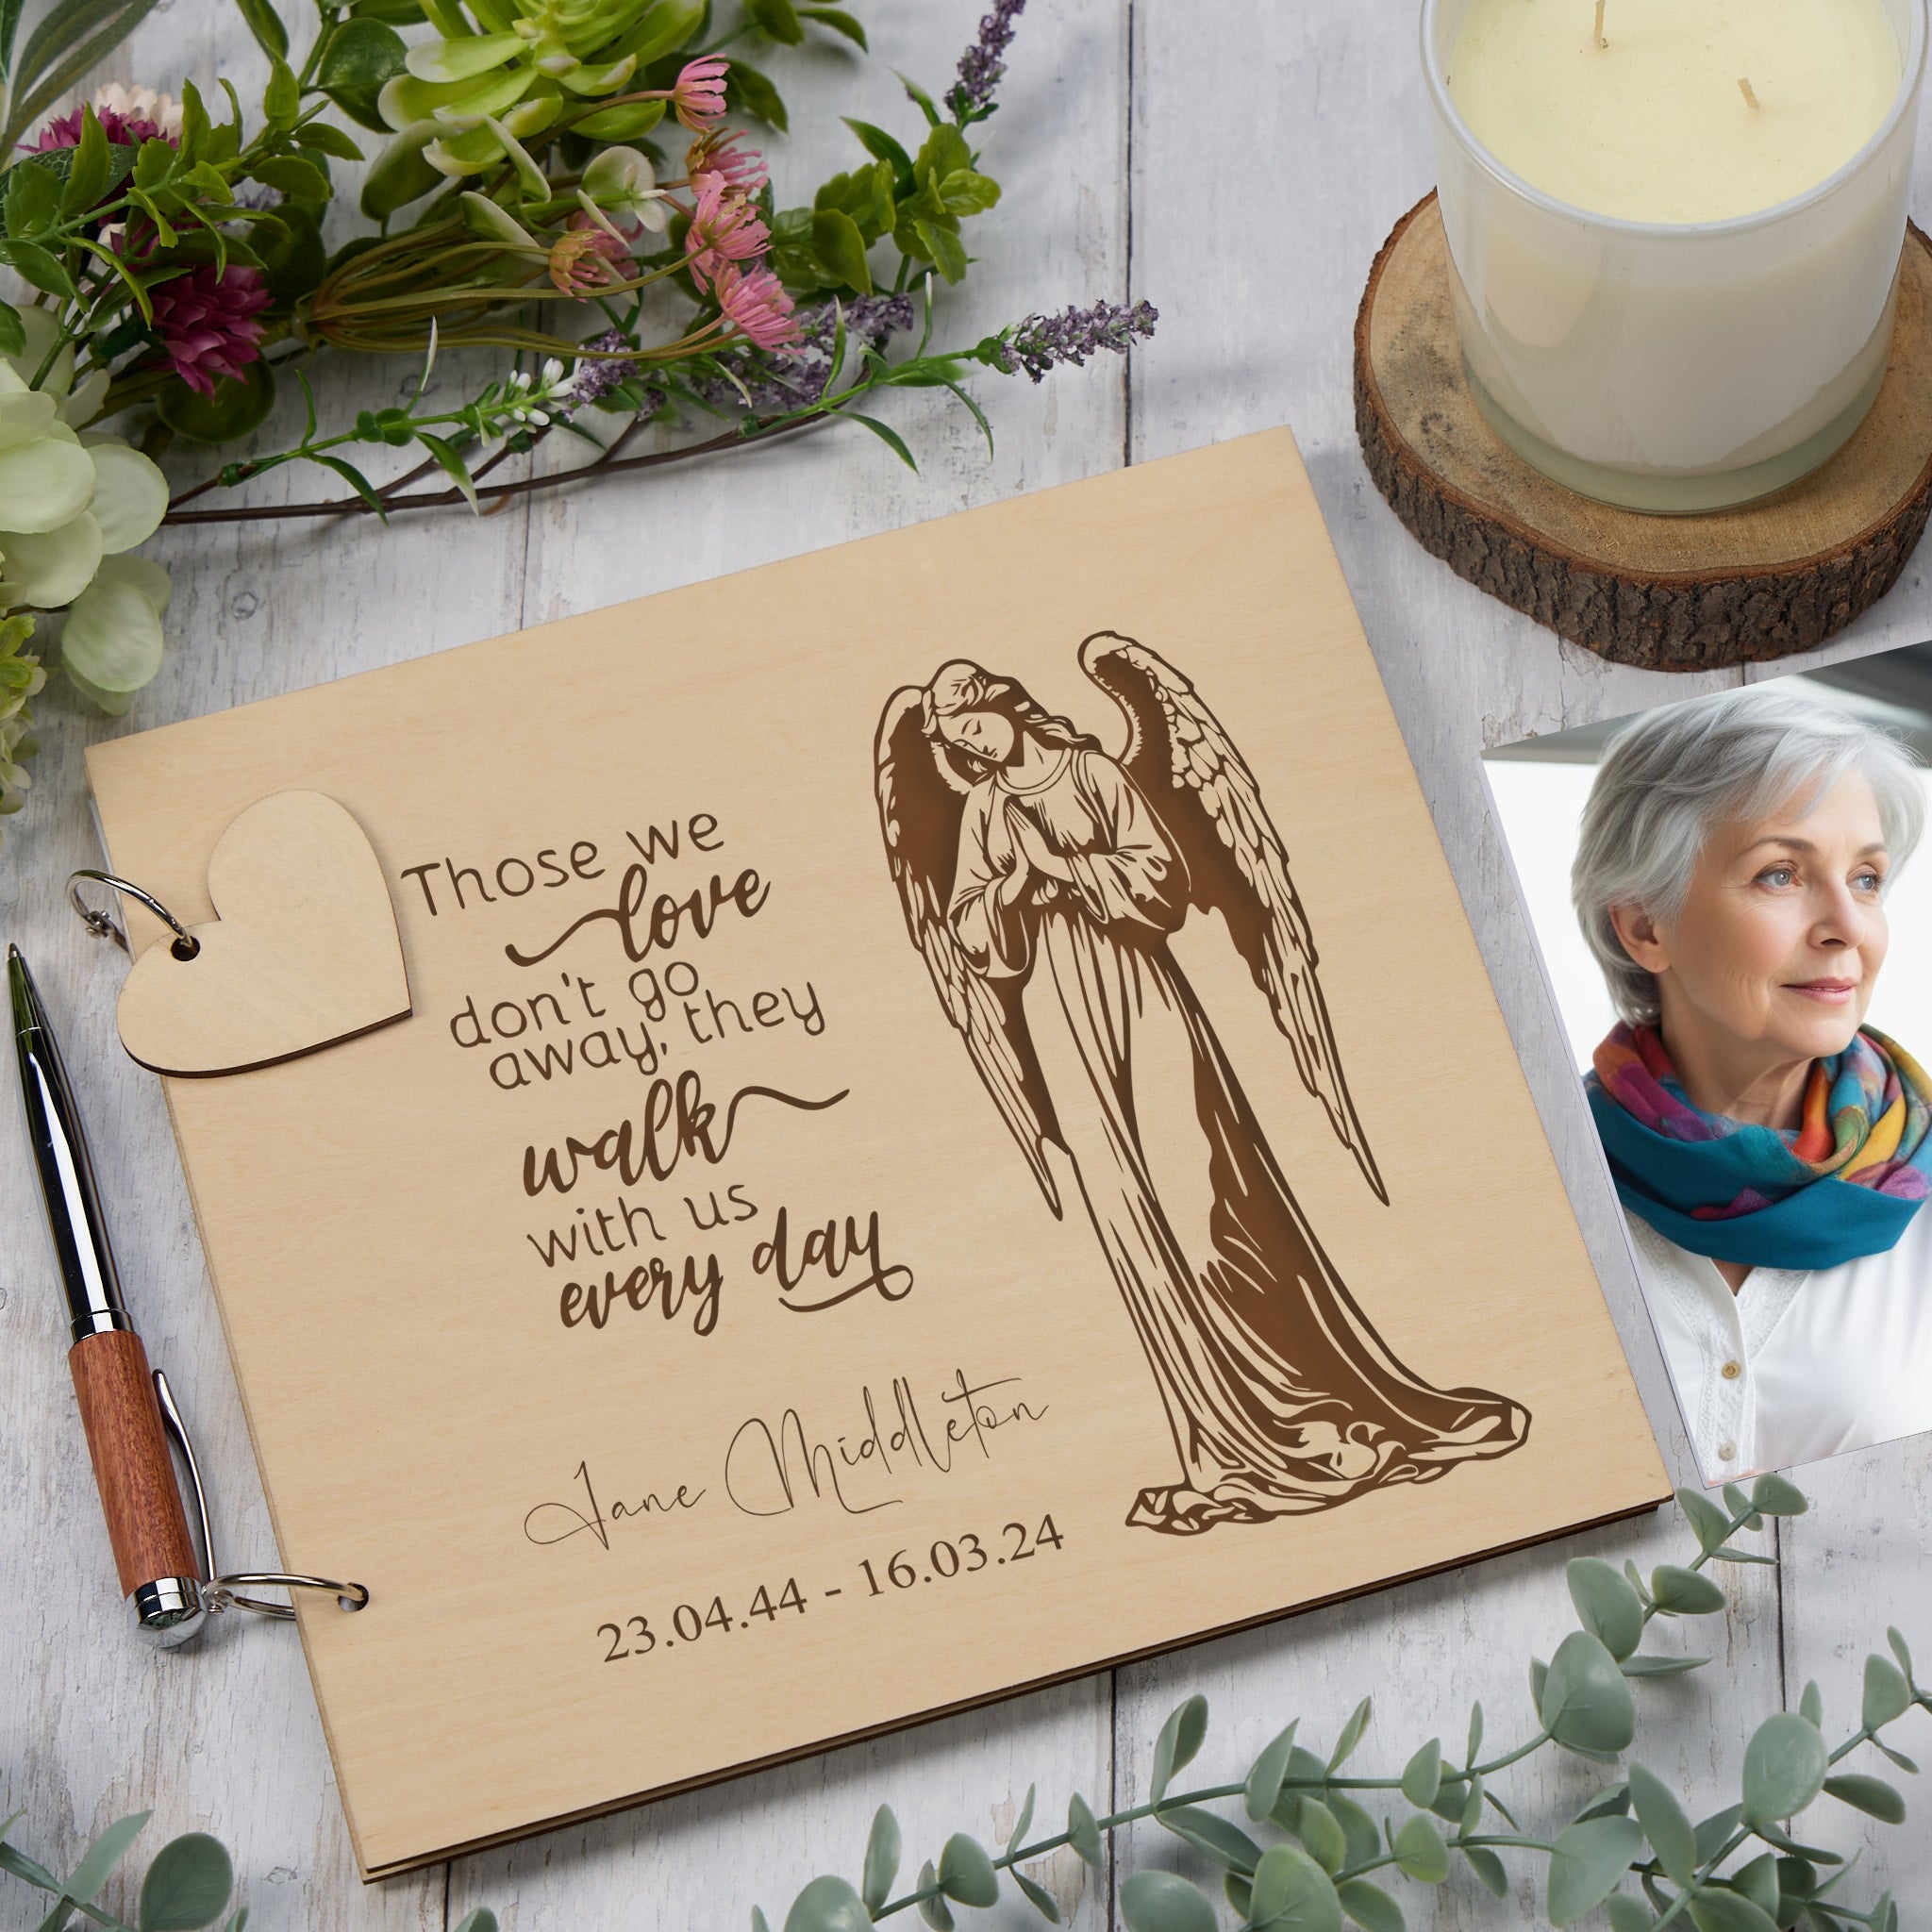 Those we
love
don't go
away, they
walk
with us
every day
Jane Middleton
23.04.44 - 16.03.24